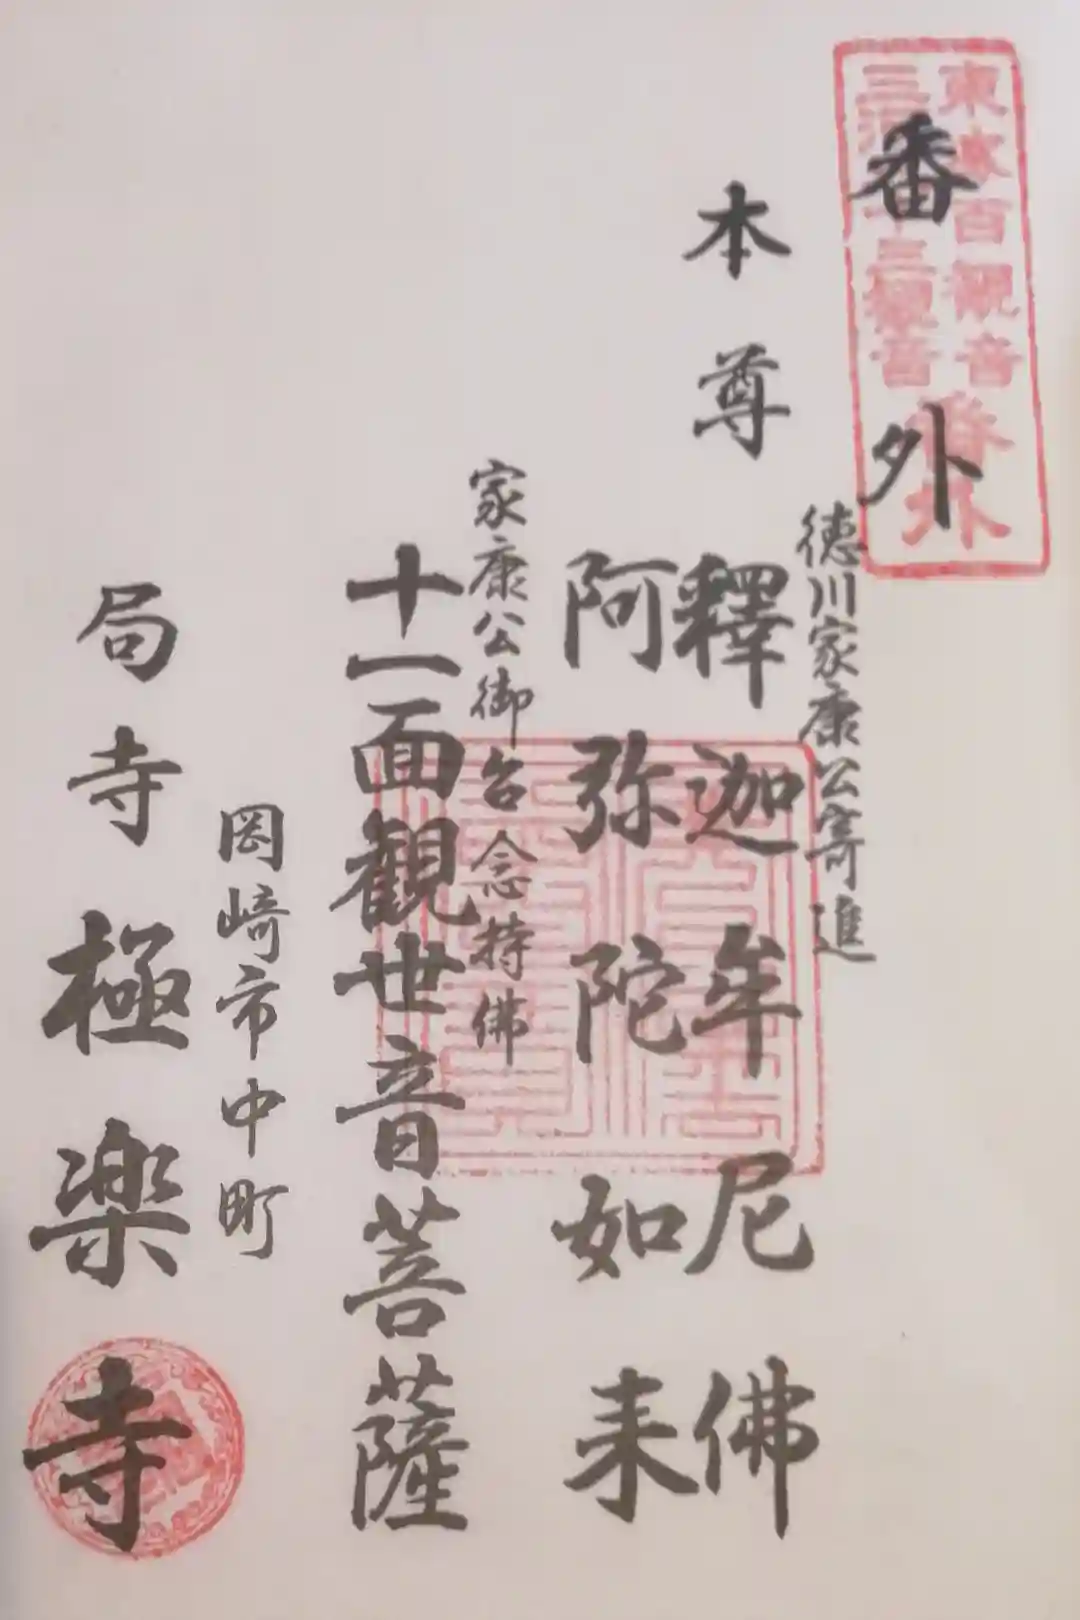 東海百観音
三河三十三観音
番外
番外
徳川家康公寄進
本尊 釋迦牟尼佛
阿弥陀如来
家康公御台念持佛
十一面観世音菩薩
岡崎市中町
局寺極楽寺